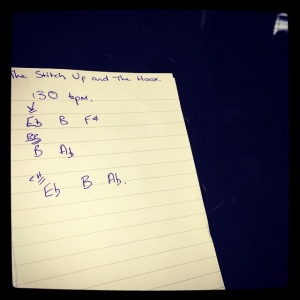 The Stitch Up and The Hoax.
130 bpm.
V
Eb B F#
BG
B Ab
CH
Eb B Ab.